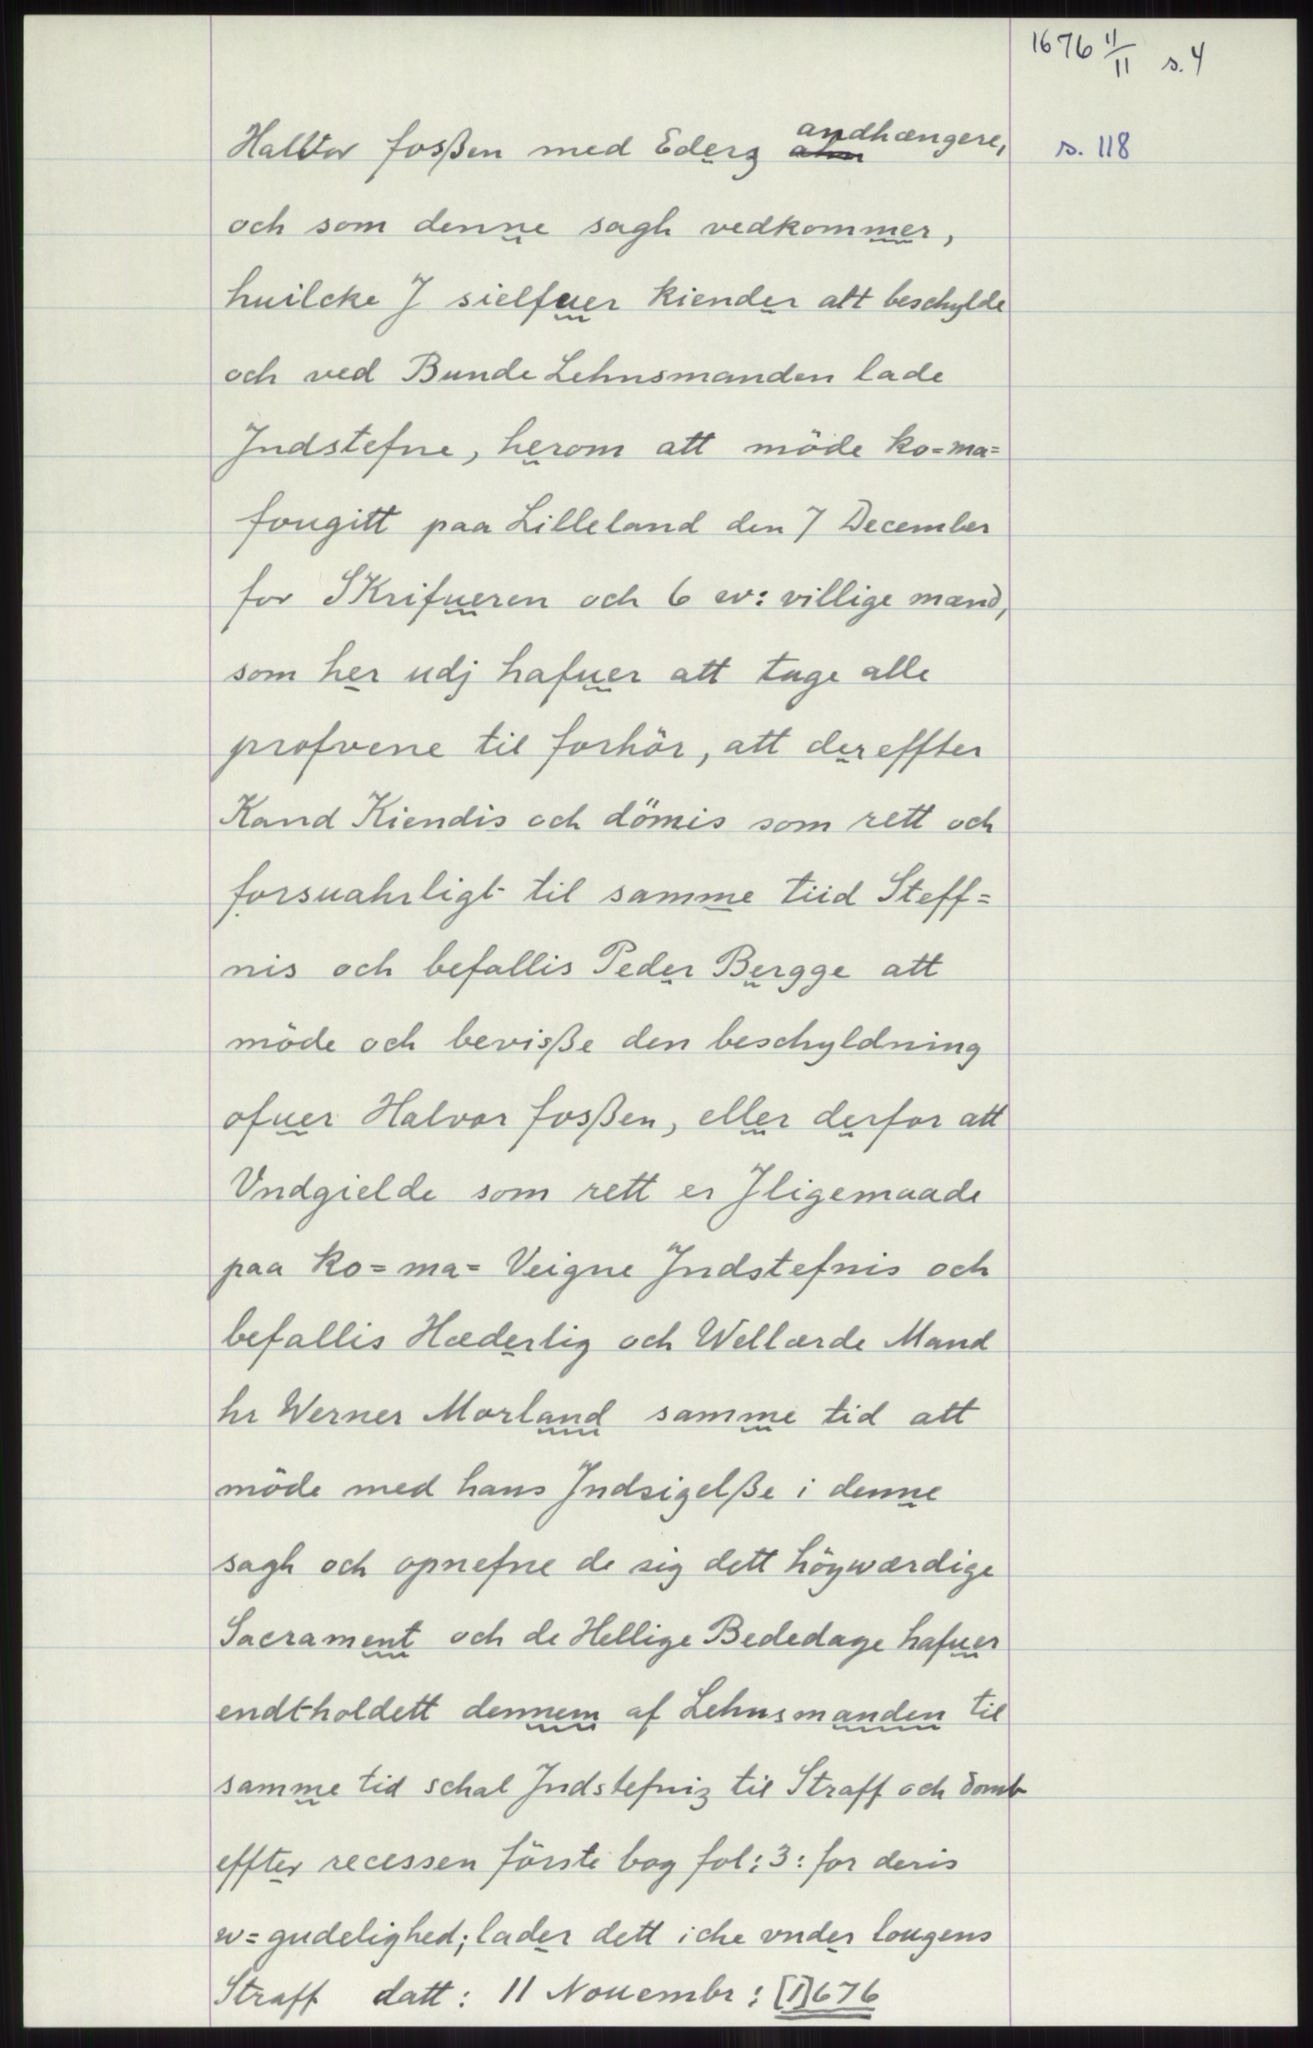 1676 11/11 s. 4
Halvor fosßen med Eders ahn andhængere, s. 118
och som denne sagh vedkommer,
huilcke J sielfuer kiender att beschylde
och ved Bunde Lehnsmanden lade
Jndstefne, herom att möde ko=ma=
fougitt paa Lilleland den 7 December
for SKrifueren och 6 w: villige mænd,
som her udj hafuer att tage alle
profvene til forhör, att dereffter
Kand Kiendis och dömis som rett och
forsuahrligt til samme tiid Steff=
nis och befallis Peder Bergge att
möde och bevisße den beschyldning
ofuer Halvor fosßen, eller derfor att
Vndgielde som rett er Jligemaade
paa ko=ma= Veigne Jndstefnis och
befallis Hæderlig och Wellærde Mand
hr Werner Morland samme tid att
möde med hans Jndsigelße i denne
sagh och opnefne de sig dett höyværdige
Sacrament och de Hellige Bededage hafuer
endtholdett dennem af Lehnsmanden til
samme tid schal Jndstefniz til Straff och domb
effter recessen förste bog fol: 3: for deris
w=gudelighed; lader dett iche vnder lougens
Straff datt: 11 Nouembr: [1]676